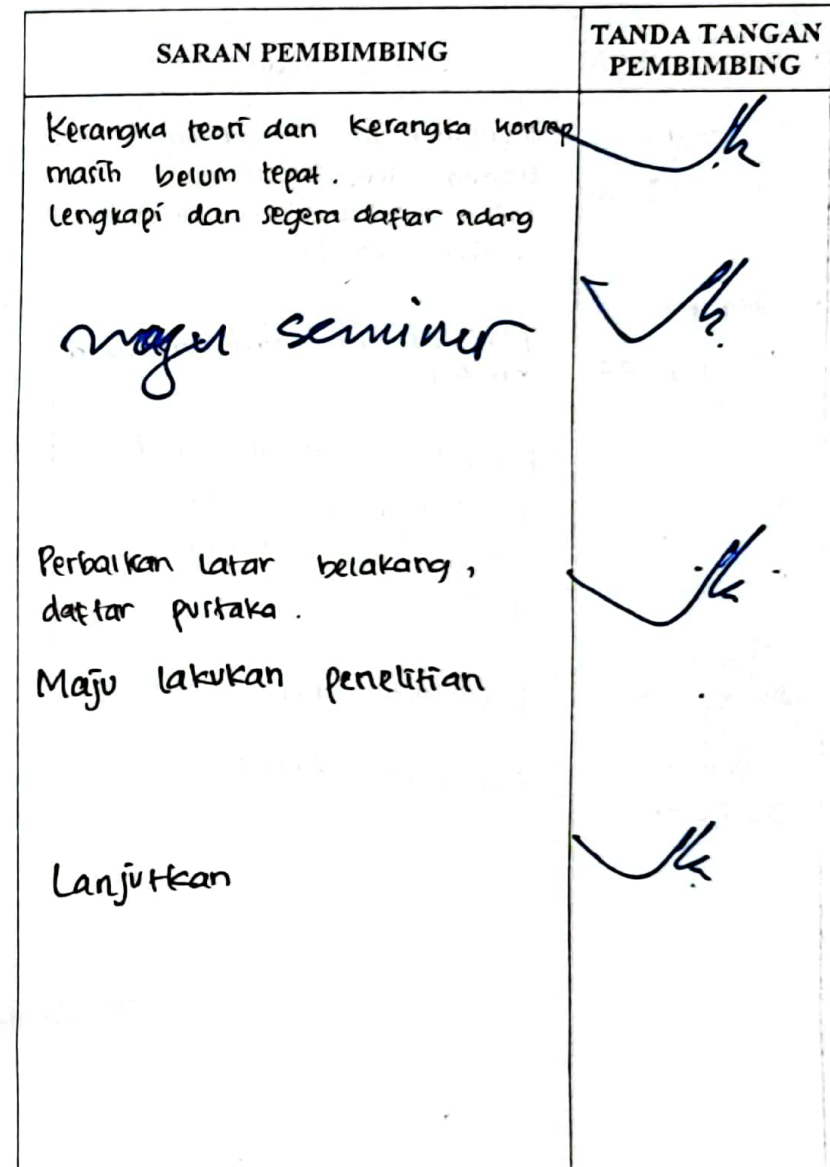 SARAN PEMBIMBING
TANDA TANGAN
PEMBIMBING
Kerangka teori dan kerangka konsep
masih belum tepat.
Lengkapi dan segera daftar sidang
maju seminar
Perbaikan Latar belakang,
daftar pustaka.
Maju lakukan penelitian
Lanjutkan